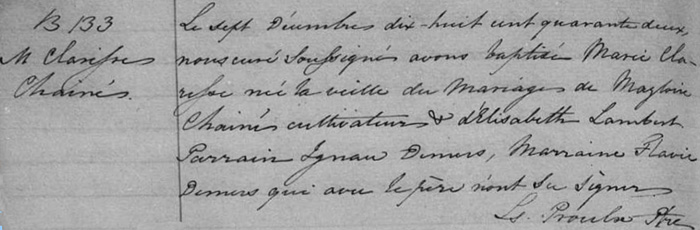 B 133
M Clarisse
Chainés.
Le sept Décembre dix-huit cent quarante deux,
nous curé soussignés avons baptisé Marie Cla-
risse née la veille du Mariage de Magloire
Chainés cultivateurs & d'Elisabeth Lambert
Parrain Ignace Demers, Marraine Flavie
Demers qui avec le père n'ont su signer
Ls. Proulx Ptre